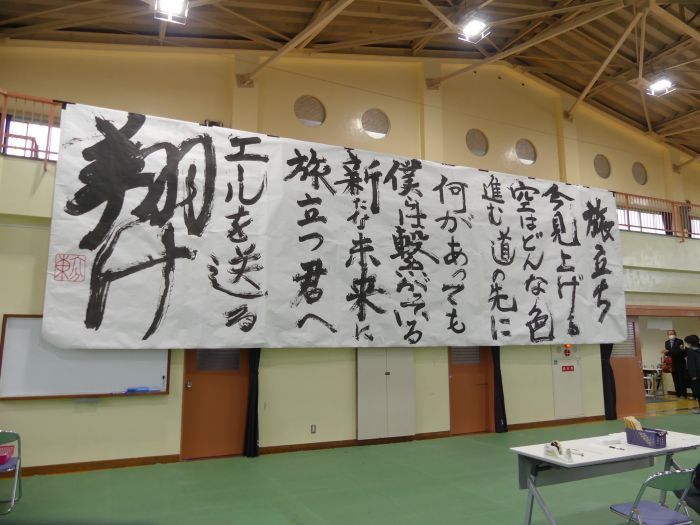 旅立ち
今見上げる
空はどんな色
進む道の先に
何があっても
僕は繋がっている
新たな未来に
旅立つ君へ
エルを送る
翔け